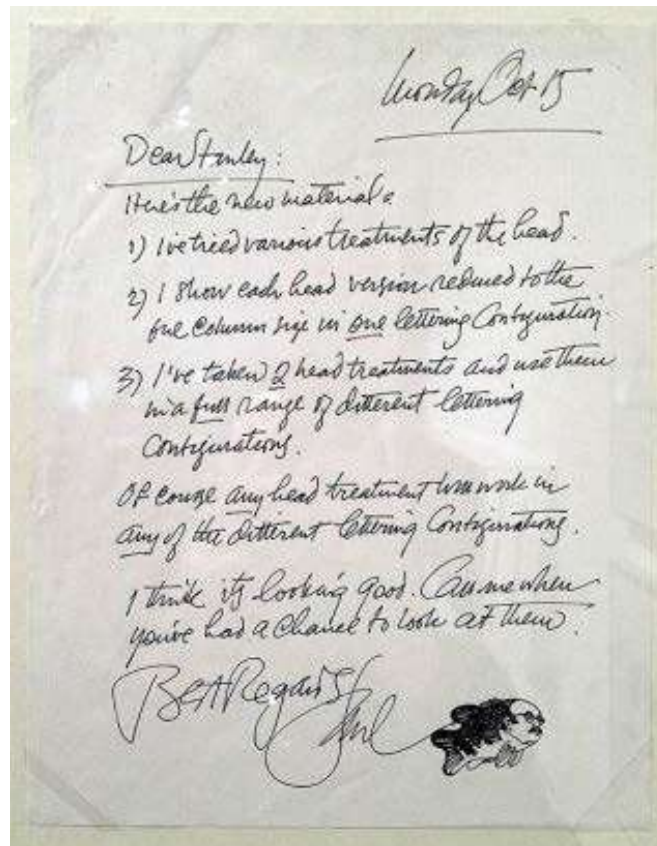 Monday Oct 15
Dear Stanley:
Here's the new material:
1) I've tried various treatments of the head.
2) I show each head version reduced to the
one column size in one lettering configuration.
3) I've taken 2 head treatments and use them
in a full range of different lettering
configurations.
Of course any head treatment can work in
any of the different lettering configurations.
I think it's looking good. Call me when
you've had a chance to look at them.
Best Regards,
Saul